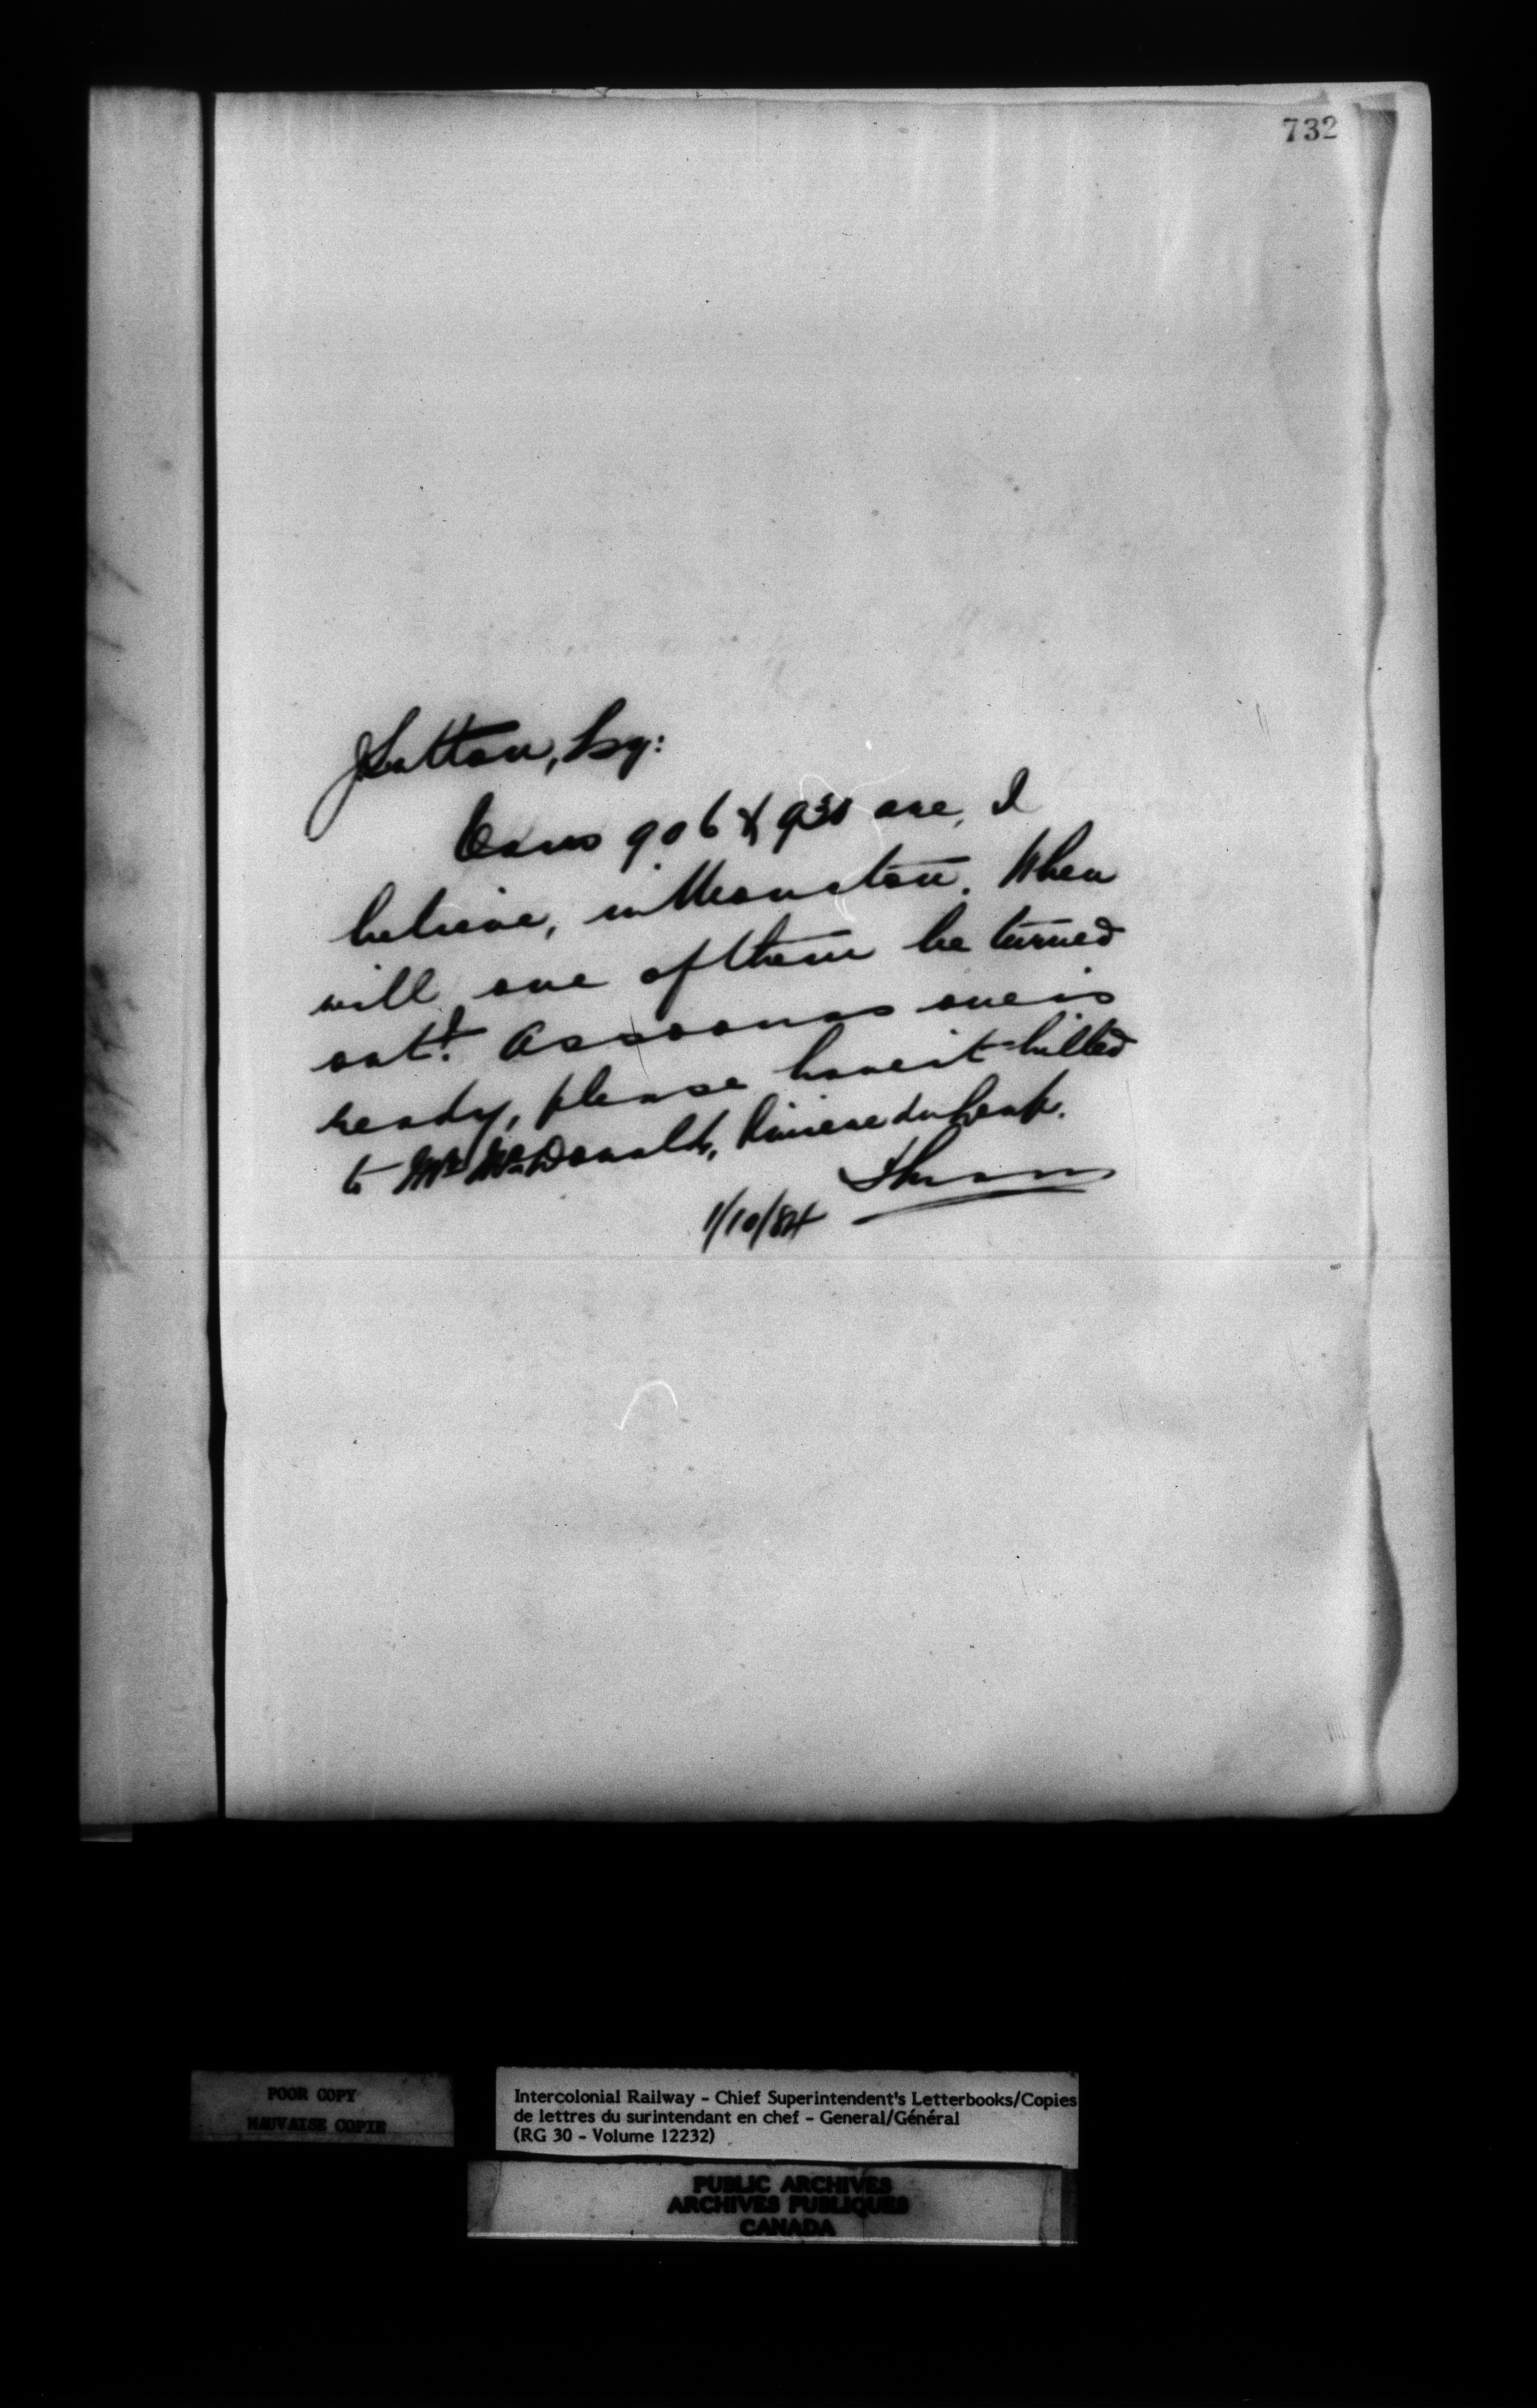 732
JSutton, Esq:
Cars 906 & 930 are, I
believe, in Moncton. When
will one of them be turned
out? As soon as one is
ready, please have it billed
to Mr McDonald, Riviere du Loup.
1/10/84
POOR COPY
MAUVAISE COPIE
Intercolonial Railway - Chief Superintendent's Letterbooks/Copies
de lettres du surintendant en chef - General/Général
(RG 30 - Volume 12232)
PUBLIC ARCHIVES
ARCHIVES PUBLIQUES
CANADA